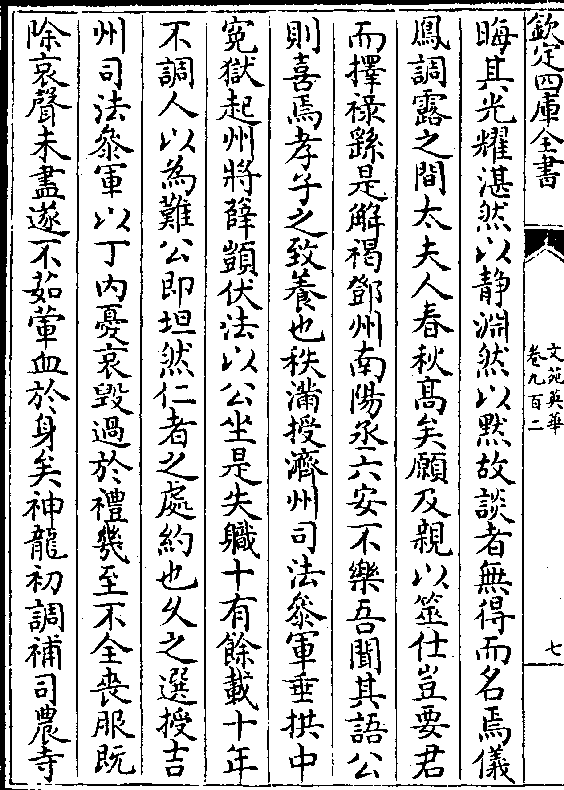 欽定四庫全書
文苑英華
卷九百二
七
晦其光耀湛然以静淵然以黙故談者無得而名焉儀
鳳調露之間太夫人春秋髙矣願及親以筮仕豈要君
而擇禄繇是解褐鄧州南陽丞六安不樂吾聞其語公
則喜焉孝子之致養也秩滿授濟州司法參軍垂拱中
寃獄起州將薛顗伏法以公坐是失職十有餘載十年
不調人以為難公即坦然仁者之處約也乆之選授吉
州司法參軍以丁内憂哀毀過於禮幾至不全喪服既
除哀聲未盡遂不茹葷血於身矣神龍初調補司農寺